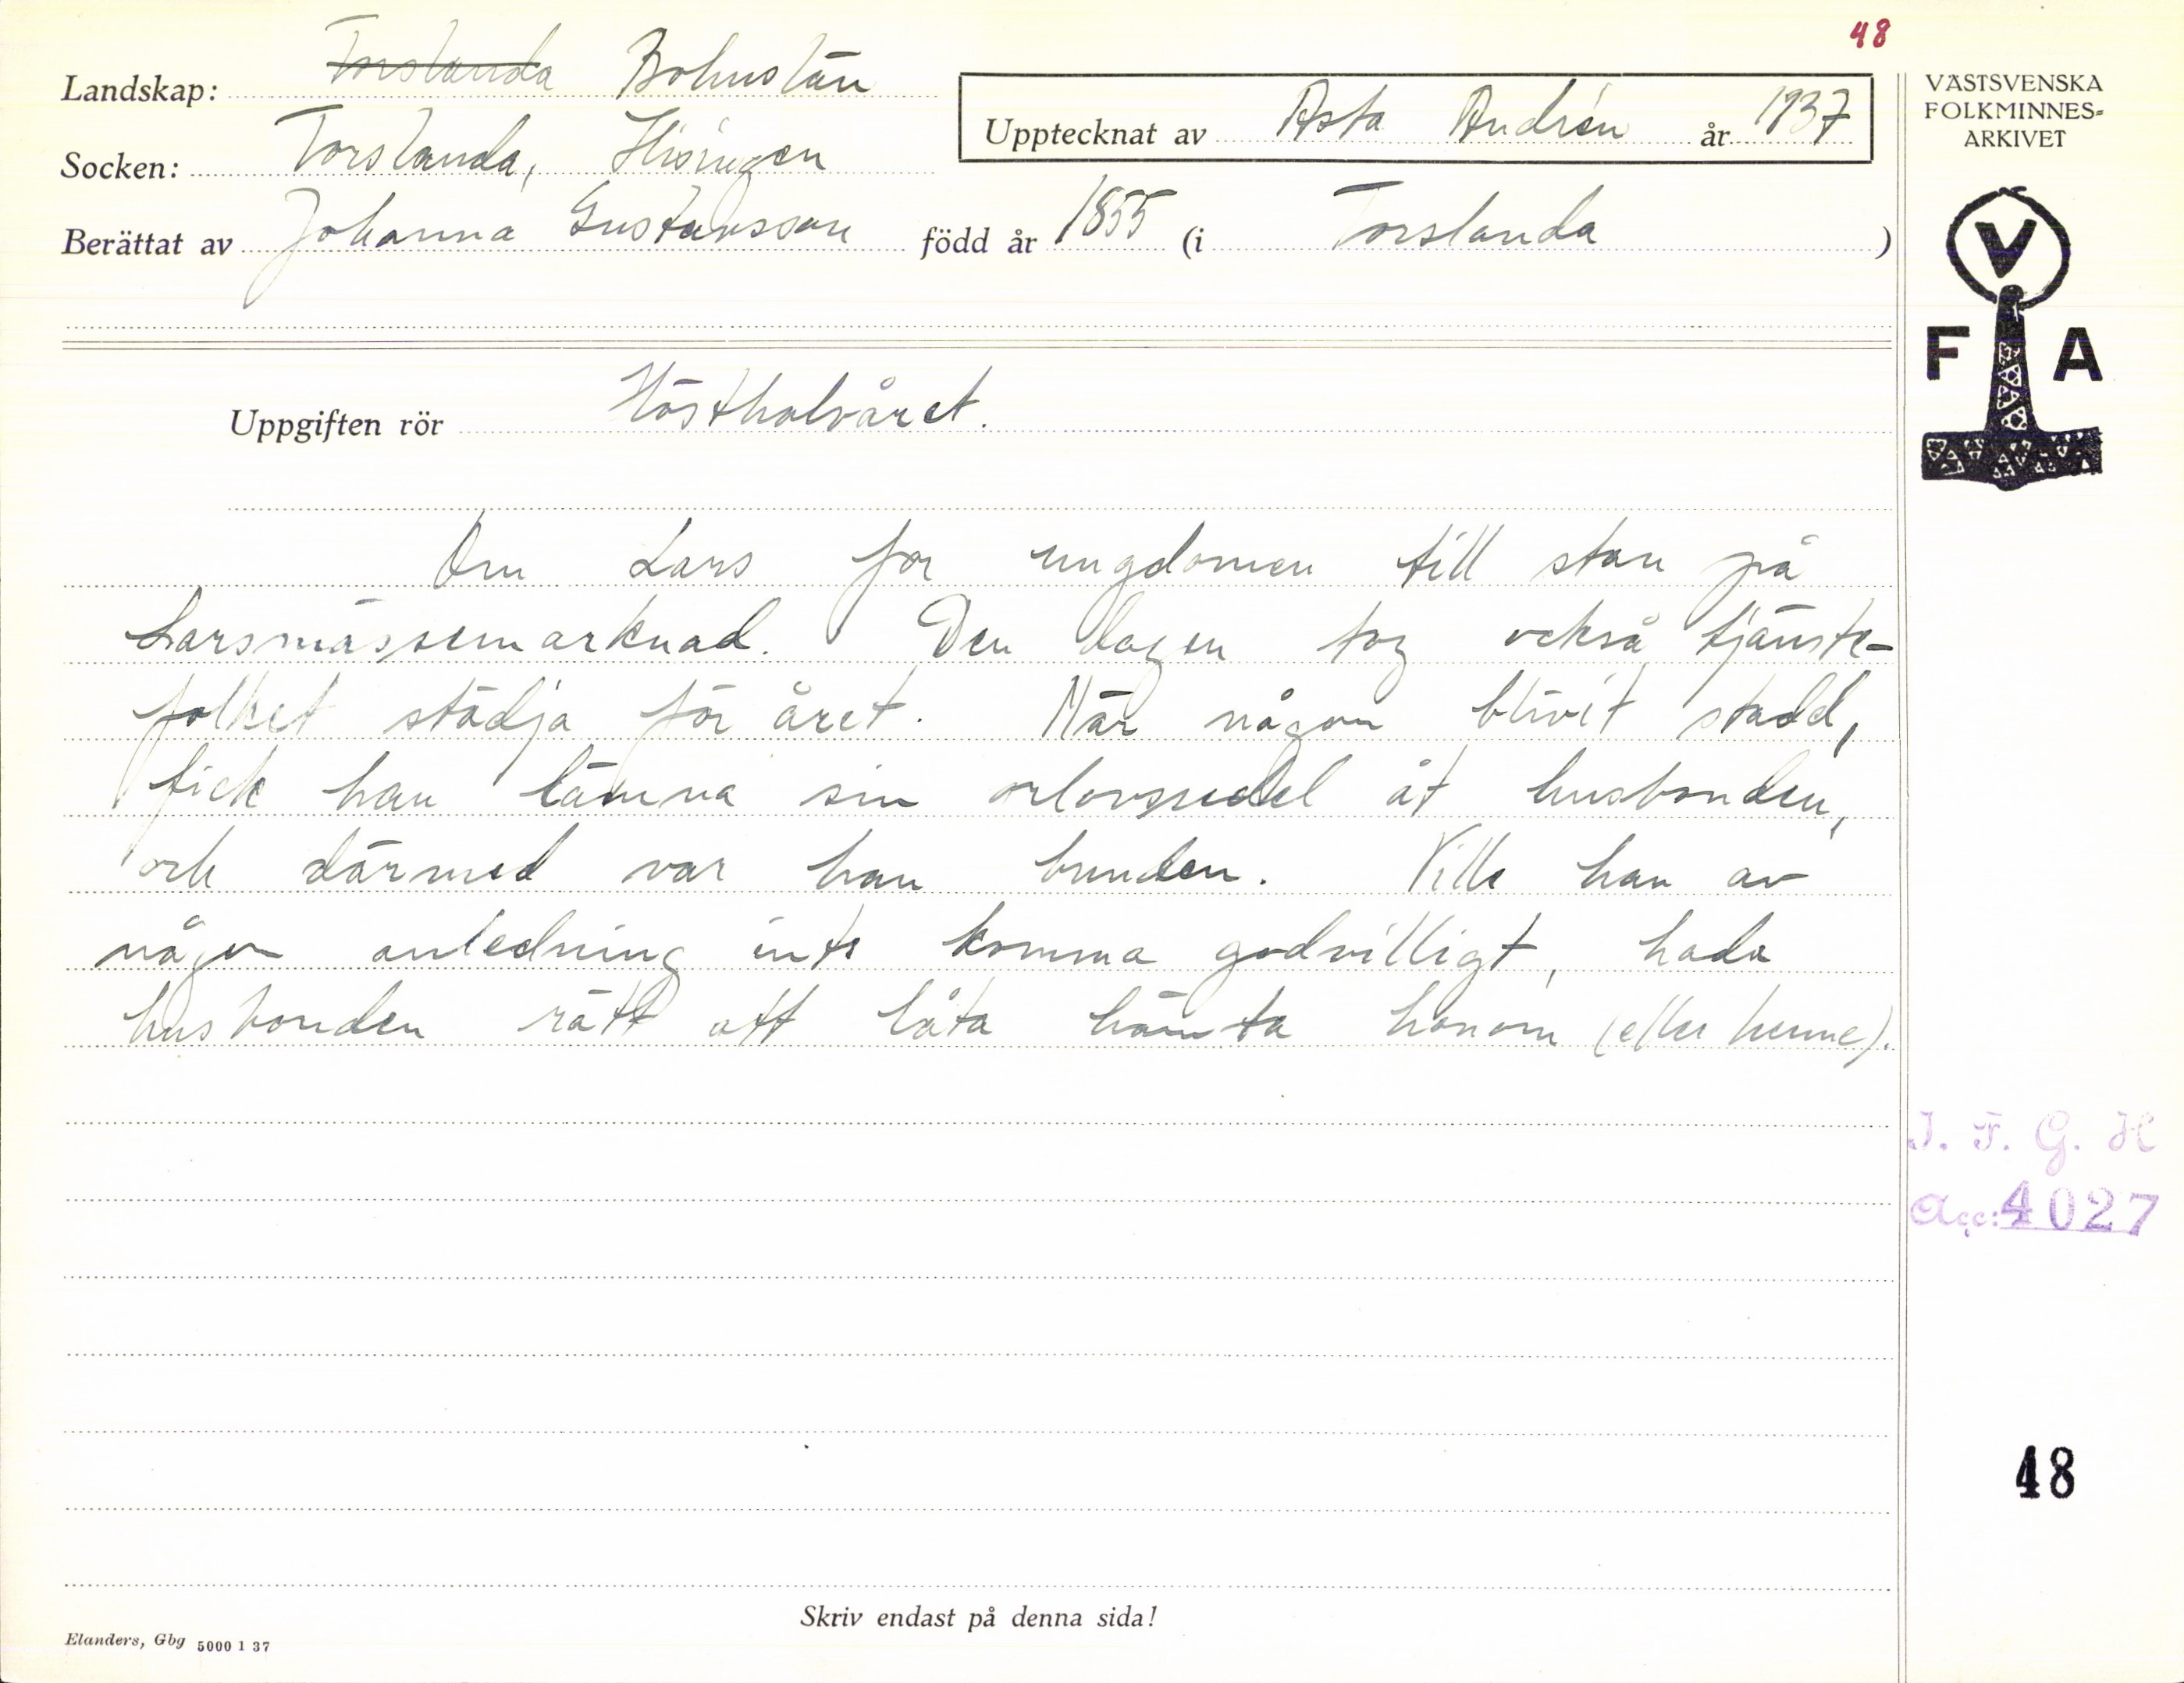 48
Landskap: Torslanda Bohuslän
Upptecknat av Asta Andrén år 1937
Socken: Torslanda, Hisingen
Berättat av Johanna Gustavsson född år 1855 (i Torslanda)
VÄSTSVENSKA
FOLKMINNES=
ARKIVET
V
F A
Uppgiften rör Hösthalvåret.
Om Lars for ungdomen till stan på
Larsmässemarknad. Den dagen tog också tjänste-
folket städja för året. När någon blivit stadd,
fick han lämna sin orlovssedel åt husbonden,
och därmed var han bunden. Ville han av
någon anledning inte komma godvilligt, hade
husbonden rätt att låta hämta honom (eller henne).
I. F. G. H
Acc: 4027
48
Skriv endast på denna sida!
Elanders, Gbg 5000 1 37